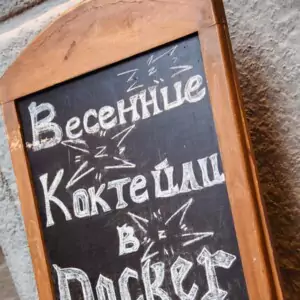 Весенние
Коктейли
в
Docker